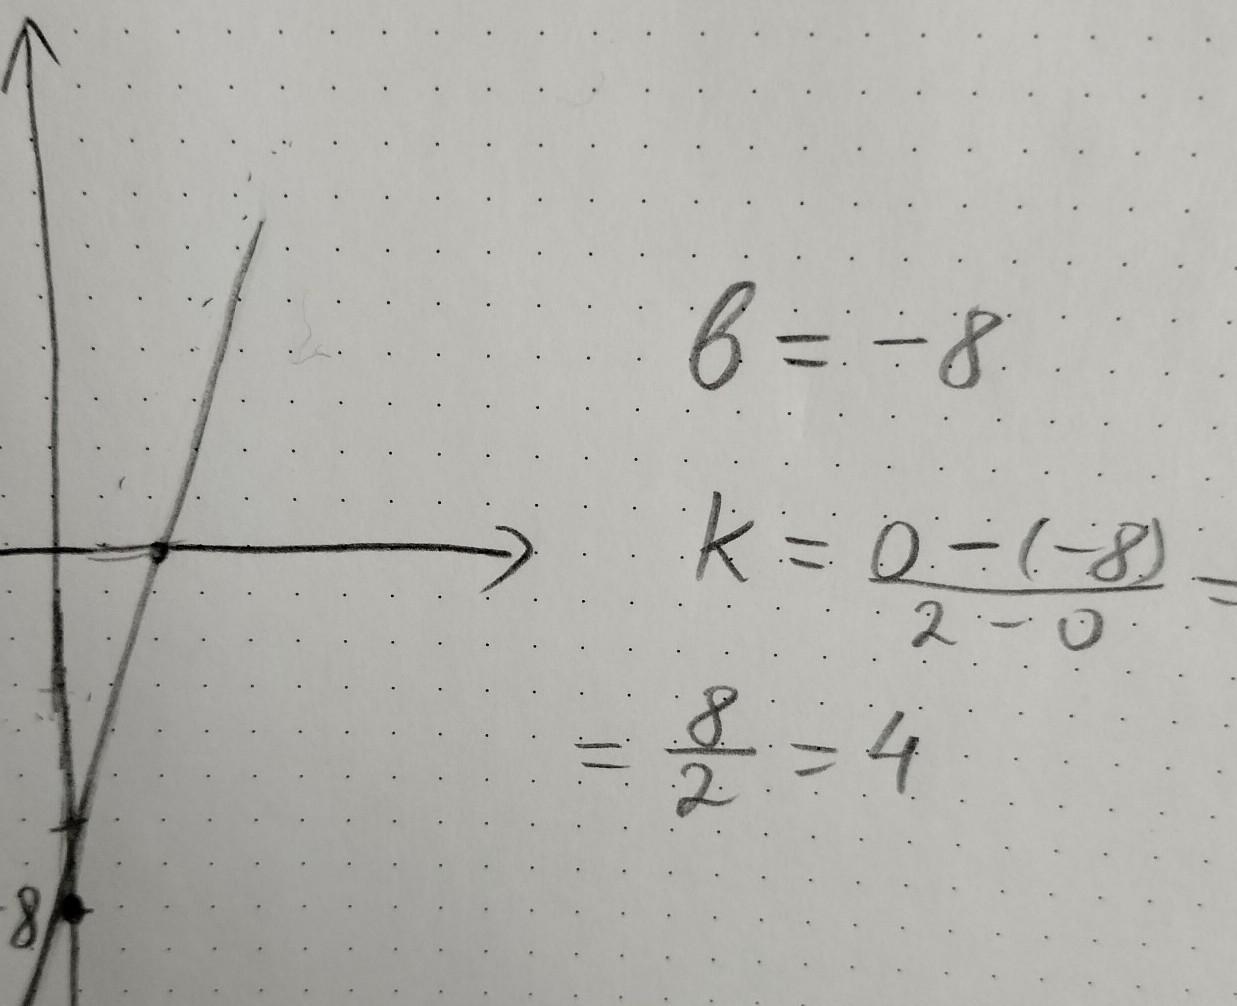 b = -8
k = \frac{0 - (-8)}{2 - 0} =
= \frac{8}{2} = 4
-8